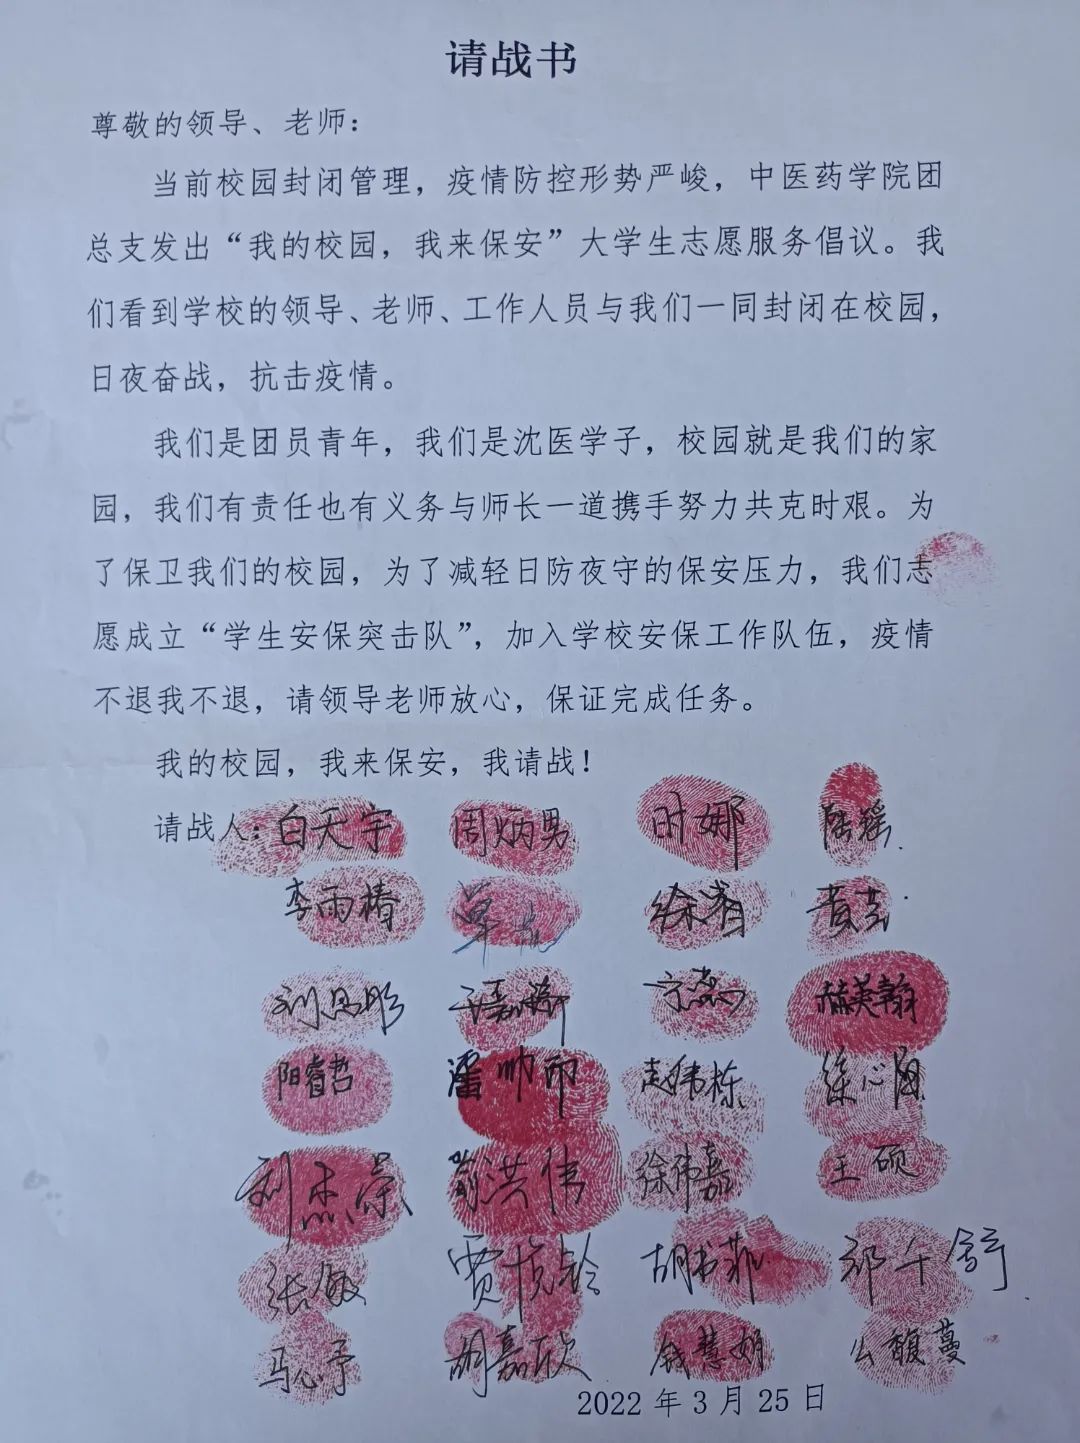 请战书
尊敬的领导、老师：
当前校园封闭管理，疫情防控形势严峻，中医药学院团
总支发出“我的校园，我来保安”大学生志愿服务倡议。我
们看到学校的领导、老师、工作人员与我们一同封闭在校园，
日夜奋战，抗击疫情。
我们是团员青年，我们是沈医学子，校园就是我们的家
园，我们有责任也有义务与师长一道携手努力共克时艰。为
了保卫我们的校园，为了减轻日防夜守的保安压力，我们志
愿成立“学生安保突击队”，加入学校安保工作队伍，疫情
不退我不退，请领导老师放心，保证完成任务。
我的校园，我来保安，我请战！
请战人：白天宇 周炳男 时娜 陆瑶
李雨椿 黄芸
刘恩彤 赫美翰
阳睿哲 潘帅帅 赵伟栋
刘杰荣 翁洪伟 徐伟嘉 王硕
张敏 贾悦龄 胡书菲 邓午舒
马心予 胡嘉欣 钱慧娟 公馥蔓
2022年3月25日